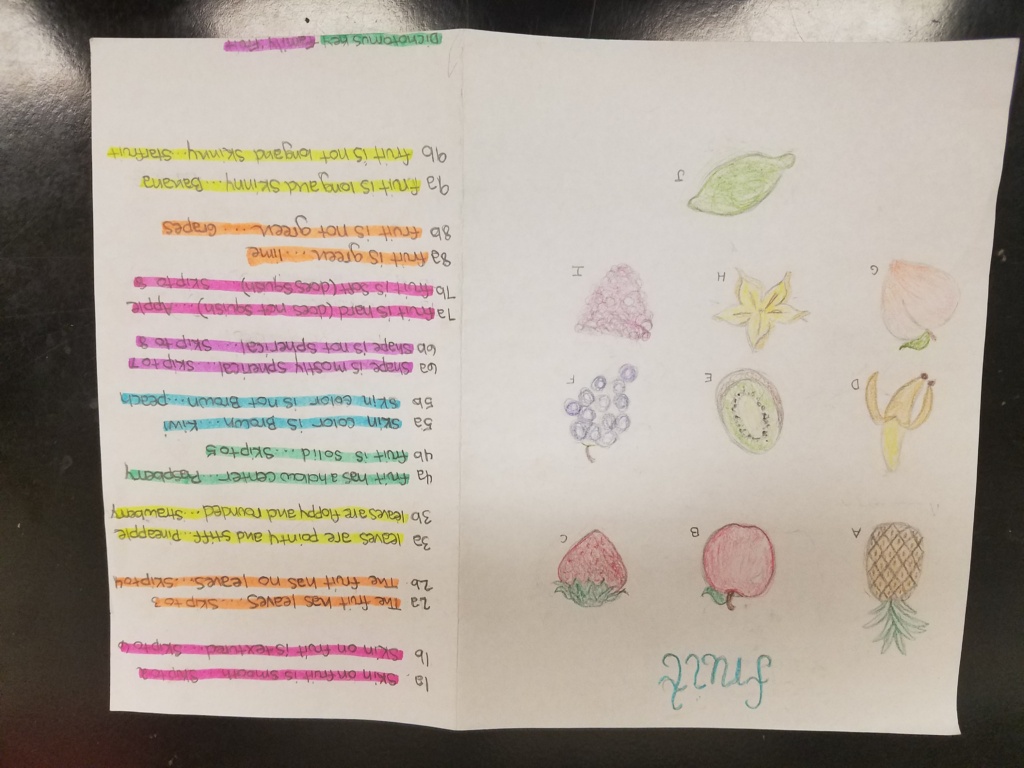 fruit
A B C
D E F
G H I
J
1a. Skin on fruit is smooth.... Skip to 2
1b Skin on fruit is textured... Skip to 6
2a The fruit has leaves... Skip to 3
2b. The fruit has no leaves... Skip to 4
3a leaves are pointy and stiff...Pineapple
3b leaves are floppy and rounded...Strawberry
4a fruit has a holow center...Raspberry
4b fruit is solid .... Skip to 5
5a Skin color is Brown...Kiwi
5b Skin color is not Brown....peach
6a Shape is mostly spherical... Skip to 7
6b Shape is not spherical... Skip to 8
7a fruit is hard (does not squish) Apple
7b fruit is soft (does squish) Skip to 8
8a fruit is green .... lime
8b fruit is not green .... Grapes
9a fruit is long and skinny...Banana
9b fruit is not long and skinny...Starfruit
Dichotomus key family